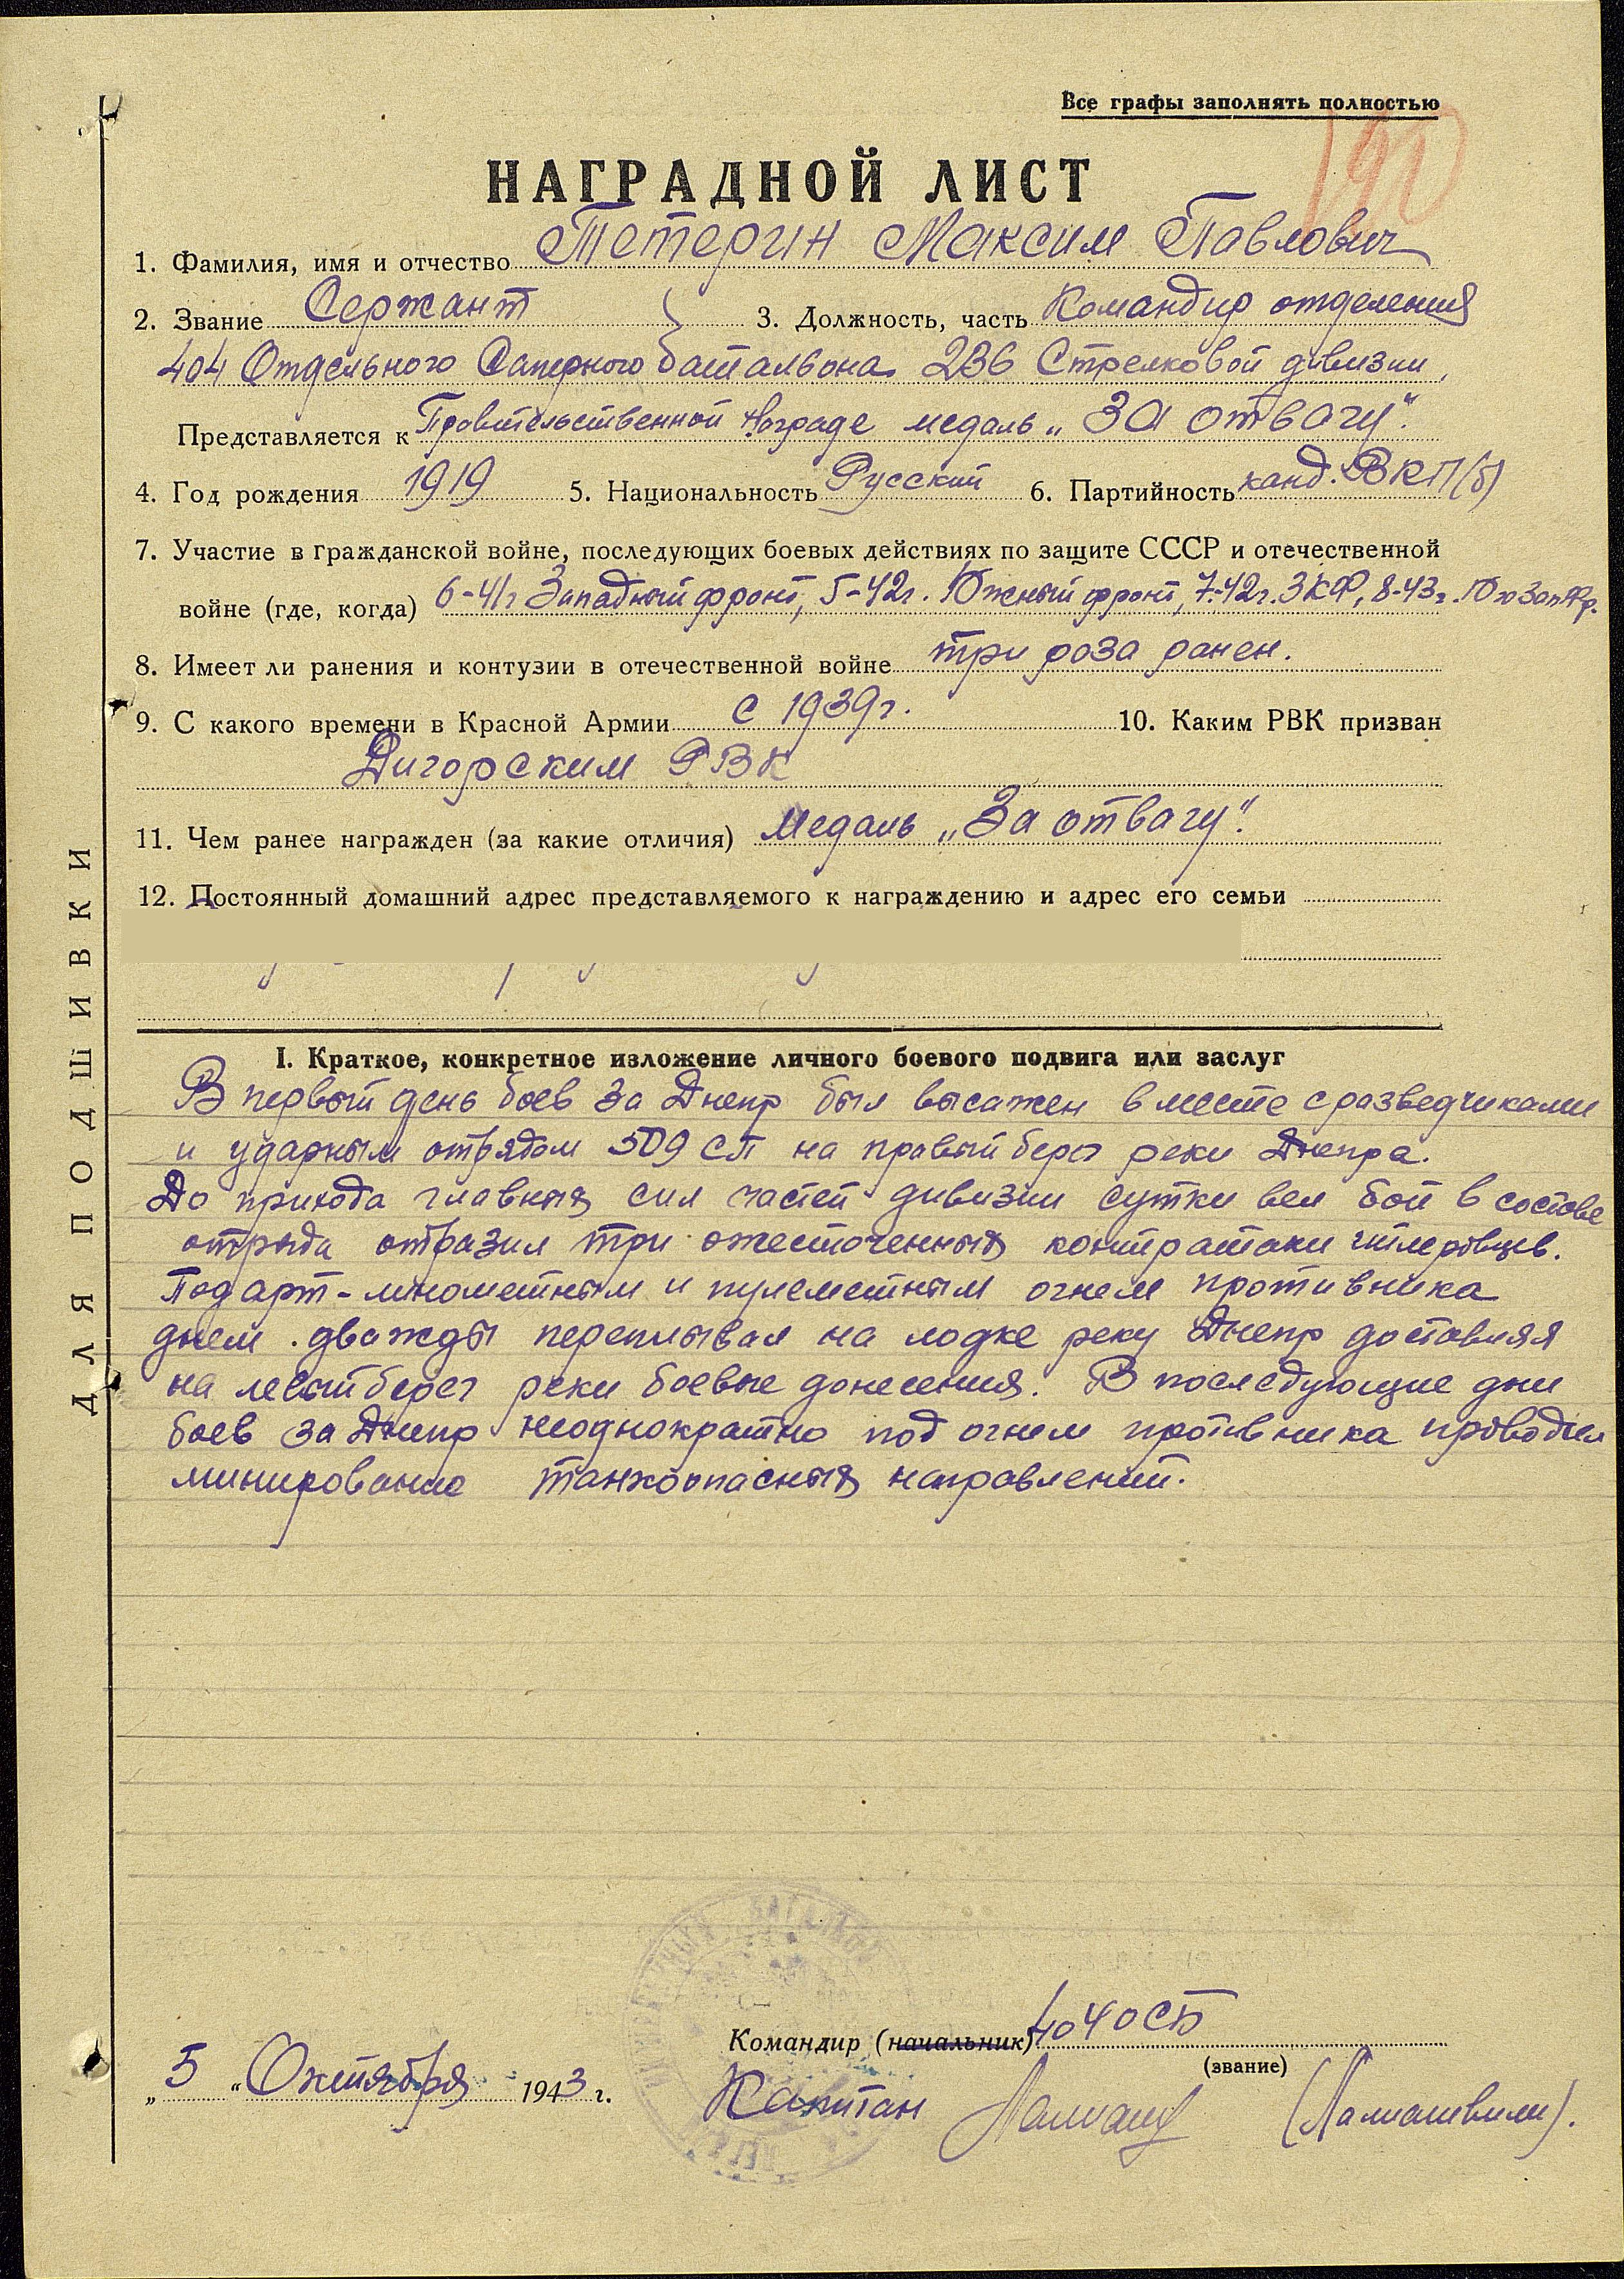 Все графы заполнять полностью
НАГРАДНОЙ ЛИСТ
1. Фамилия, имя и отчество Тетерин Максим Павлович
2. Звание Сержант 3. Должность, часть Командир отделения
404 Отдельного Саперного батальона 236 Стрелковой дивизии,
Представляется к Правительственной награде медаль „ЗА отвагу".
4. Год рождения 1919 5. Национальность Русский 6. Партийность канд. ВКП/б)
7. Участие в гражданской войне, последующих боевых действиях по защите СССР и отечественной
войне (где, когда) 6-41г Западный фронт, 5-42г. Южный фронт, 7-42г. ЗКФ, 8-43г. Юго Зап Фр.
8. Имеет ли ранения и контузии в отечественной войне три раза ранен.
9. С какого времени в Красной Армии с 1939г. 10. Каким РВК призван
Дигорским РВК
11. Чем ранее награжден (за какие отличия) Медаль „За отвагу".
12. Постоянный домашний адрес представляемого к награждению и адрес его семьи
I. Краткое, конкретное изложение личного боевого подвига или заслуг
В первый день боев за Днепр был высажен вместе с разведчиками
и ударным отрядом 509 СП на правый берег реки Днепра.
До прихода главных сил частей дивизии сутки вел бой в составе
отряда отразил три ожесточенных контратаки гитлеровцев.
Под арт-минометным и пулеметным огнем противника
днем дважды переплывал на лодке реку Днепр доставляя
на левый берег реки боевые донесения. В последующие дни
боев за Днепр неоднократно под огнем противника проводил
минирование танкоопасных направлений.
Командир (начальник) 404 ОСБ
(звание)
„5" Октября 1943 г.
Капитан (Лалиашвили).
ДЛЯ ПОДШИВКИ